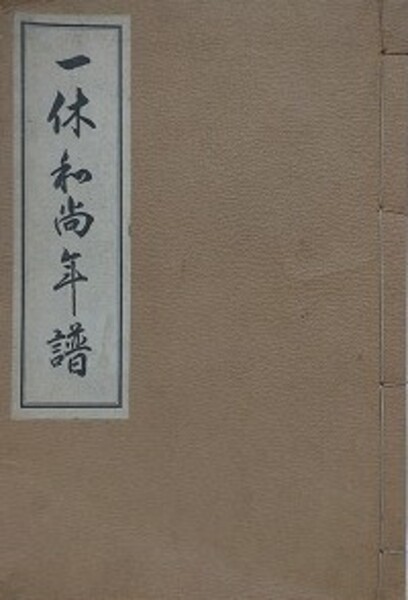 一休和尚年譜